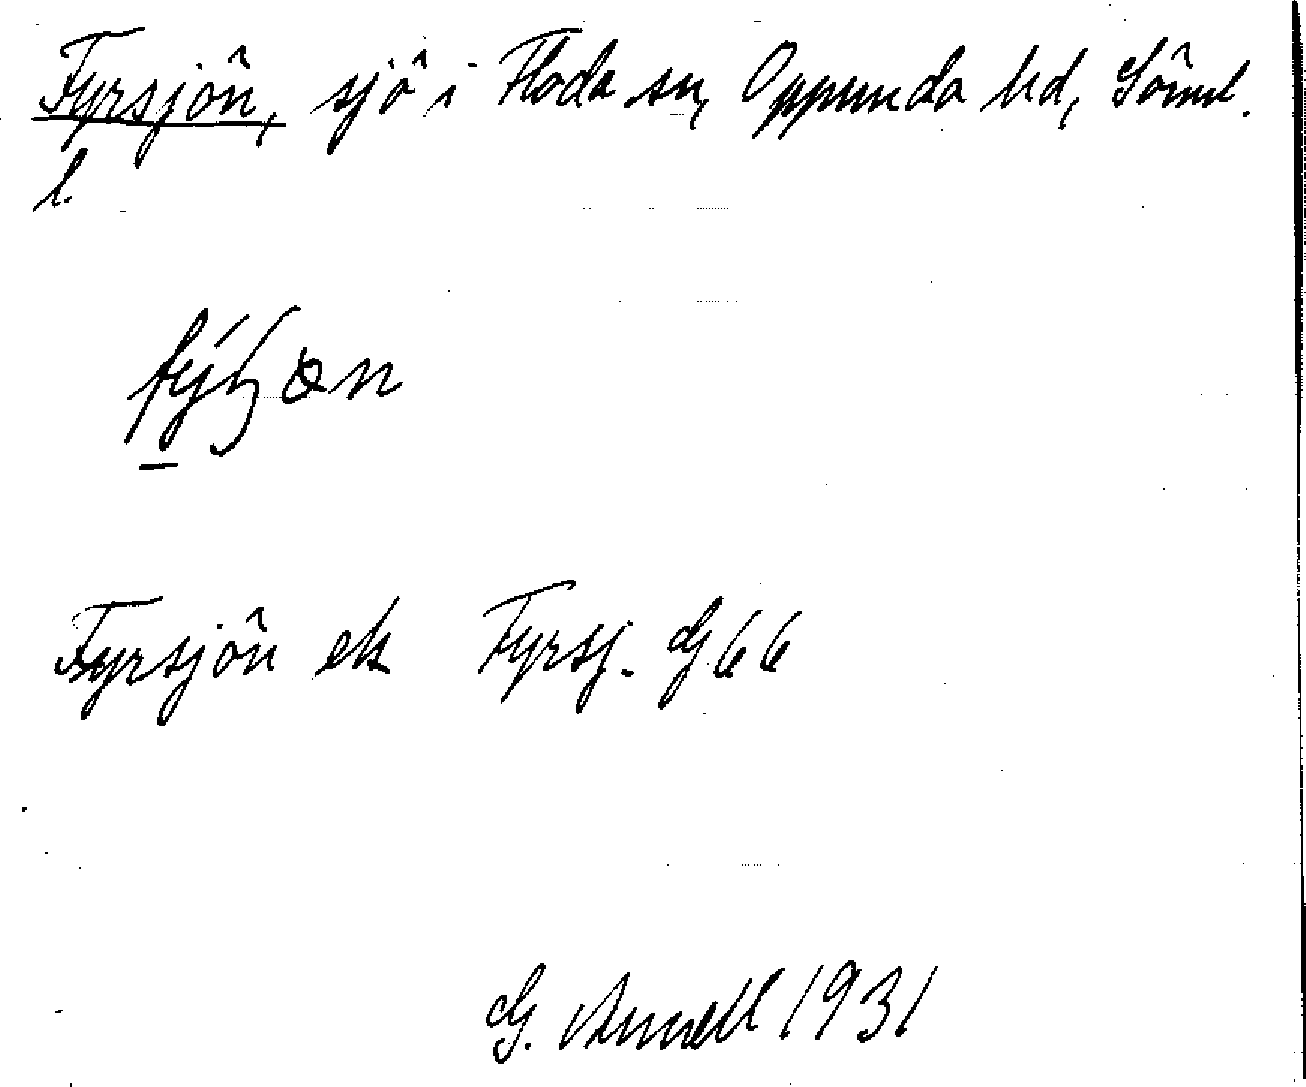 Fyrsjön, sjö i Floda sn, Oppunda hd, Söml.
l.
Fyrsjön ek Fyrsj. G 66
G. Arnell 1931